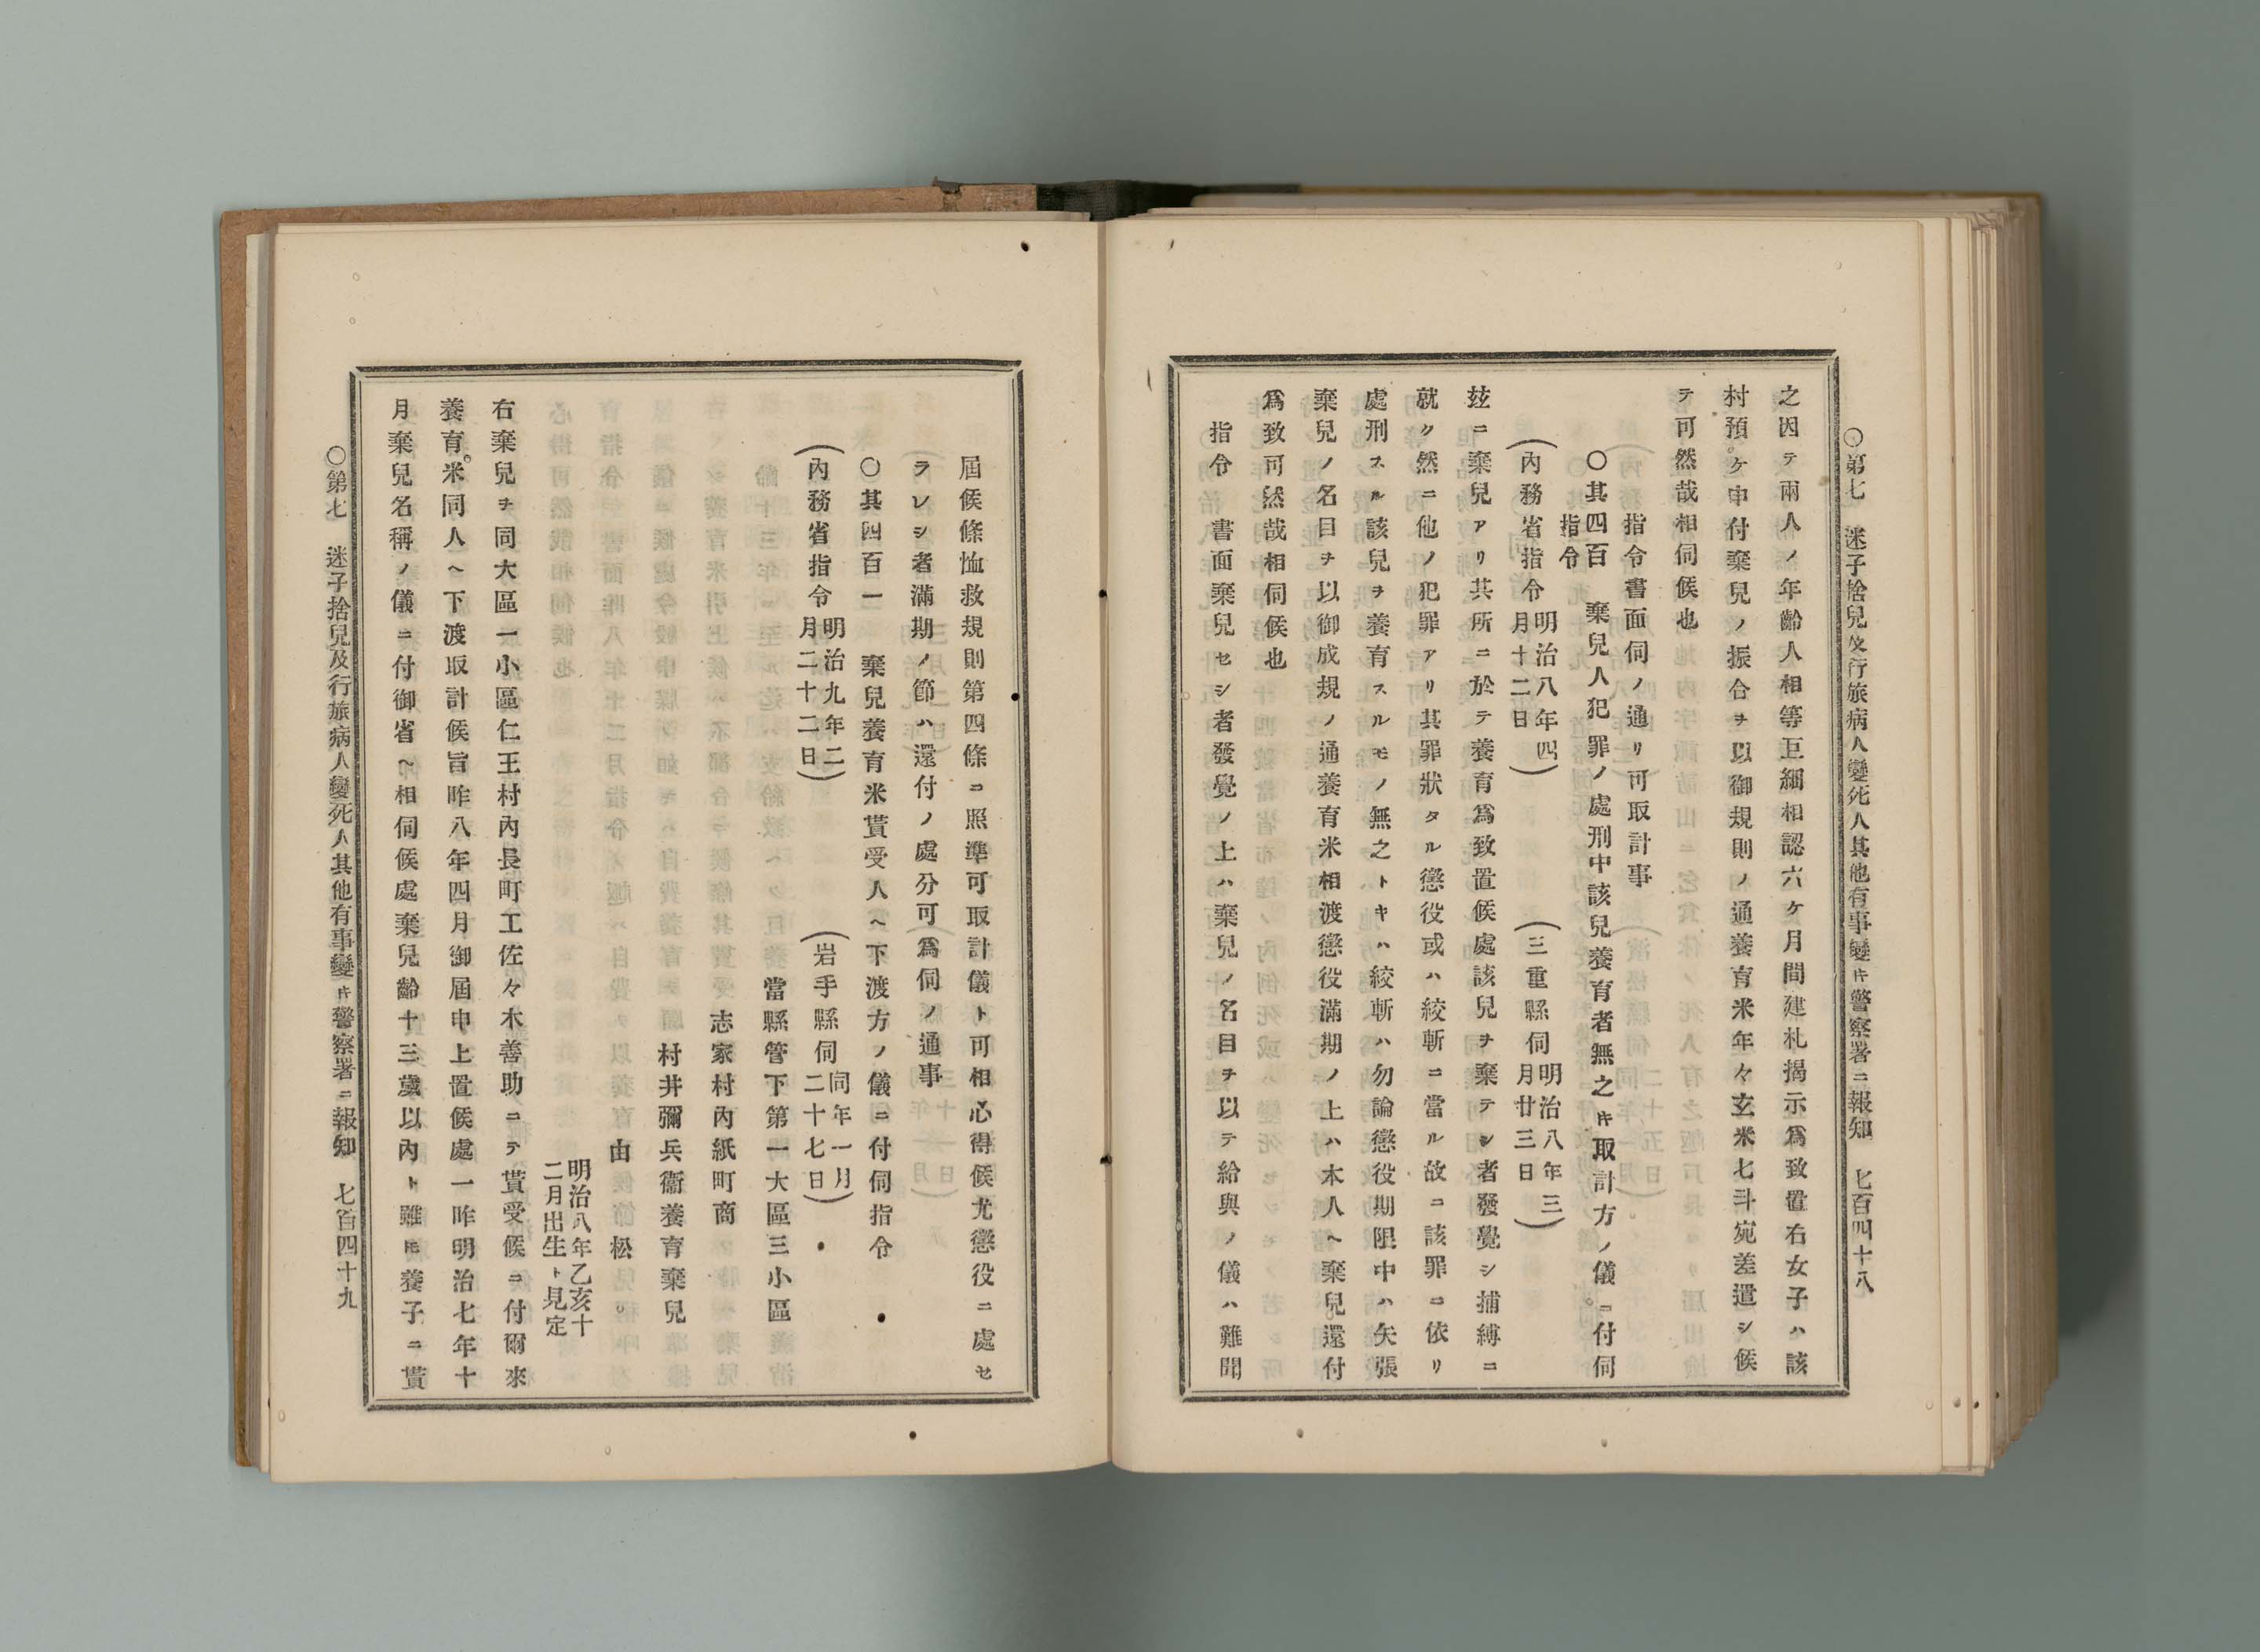 〇第七　迷子捨兒及行旅病人變死人其他有事變キ警察署ニ報知　七百四十八
之因テ兩人ノ年齡人相等巨細相認六ケ月間建札揭示爲致置右女子ハ該
村預ケ申付棄兒ノ振合ヲ以御規則ノ通養育米年々玄米七斗宛差遣シ候
テ可然哉相伺候也
指令書面伺ノ通リ可取計事
〇其四百　棄兒人犯罪ノ處刑中該兒養育者無之キ取計方ノ儀ニ付伺
指令
（內務省指令明治八年四月十二日）　（三重縣伺明治八年三月廿三日）
玆ニ棄兒アリ共所ニ於テ養育爲致置候處該兒ヲ棄テシ者發覺シ捕縛ニ
就ク然ニ他ノ犯罪アリ其罪狀タル懲役或ハ絞斬ニ當ル故ニ該罪ニ依リ
處刑スル該兒ヲ養育スルモノ無之トキハ絞斬ハ勿論懲役期限中ハ矢張
棄兒ノ名目ヲ以御成規ノ通養育米相渡懲役滿期ノ上ハ本人ヘ棄兒還付
爲致可然哉相伺候也
指令　書面棄兒セシ者發覺ノ上ハ棄兒ノ名目ヲ以テ給與ノ儀ハ難聞
屆候條恤救規則第四條ニ照準可取計儀ト可相心得候尤懲役ニ處セ
ラレシ者滿期ノ節ハ還付ノ處分可爲伺ノ通事
〇其四百一　棄兒養育米貰受人ヘ下渡方ノ儀ニ付伺指令
（內務省指令明治九年二月二十二日）　（岩手縣伺同年一月二十七日）
當縣管下第一大區三小區
志家村內紙町商
村井彌兵衞養育棄兒
由松
明治八年乙亥十
二月出生ト見定
右棄兒ヲ同大區一小區仁王村內長町工佐々木善助ニテ貰受候ニ付爾來
養育米同人ヘ下渡取計候旨昨八年四月御屆申上置候處一昨明治七年十
月棄兒名稱ノ儀ニ付御省ヘ相伺候處棄兒齡十三歲以內ト雖モ養子ニ貰
〇第七　迷子捨兒及行旅病人變死人其他有事變キ警察署ニ報知　七百四十九